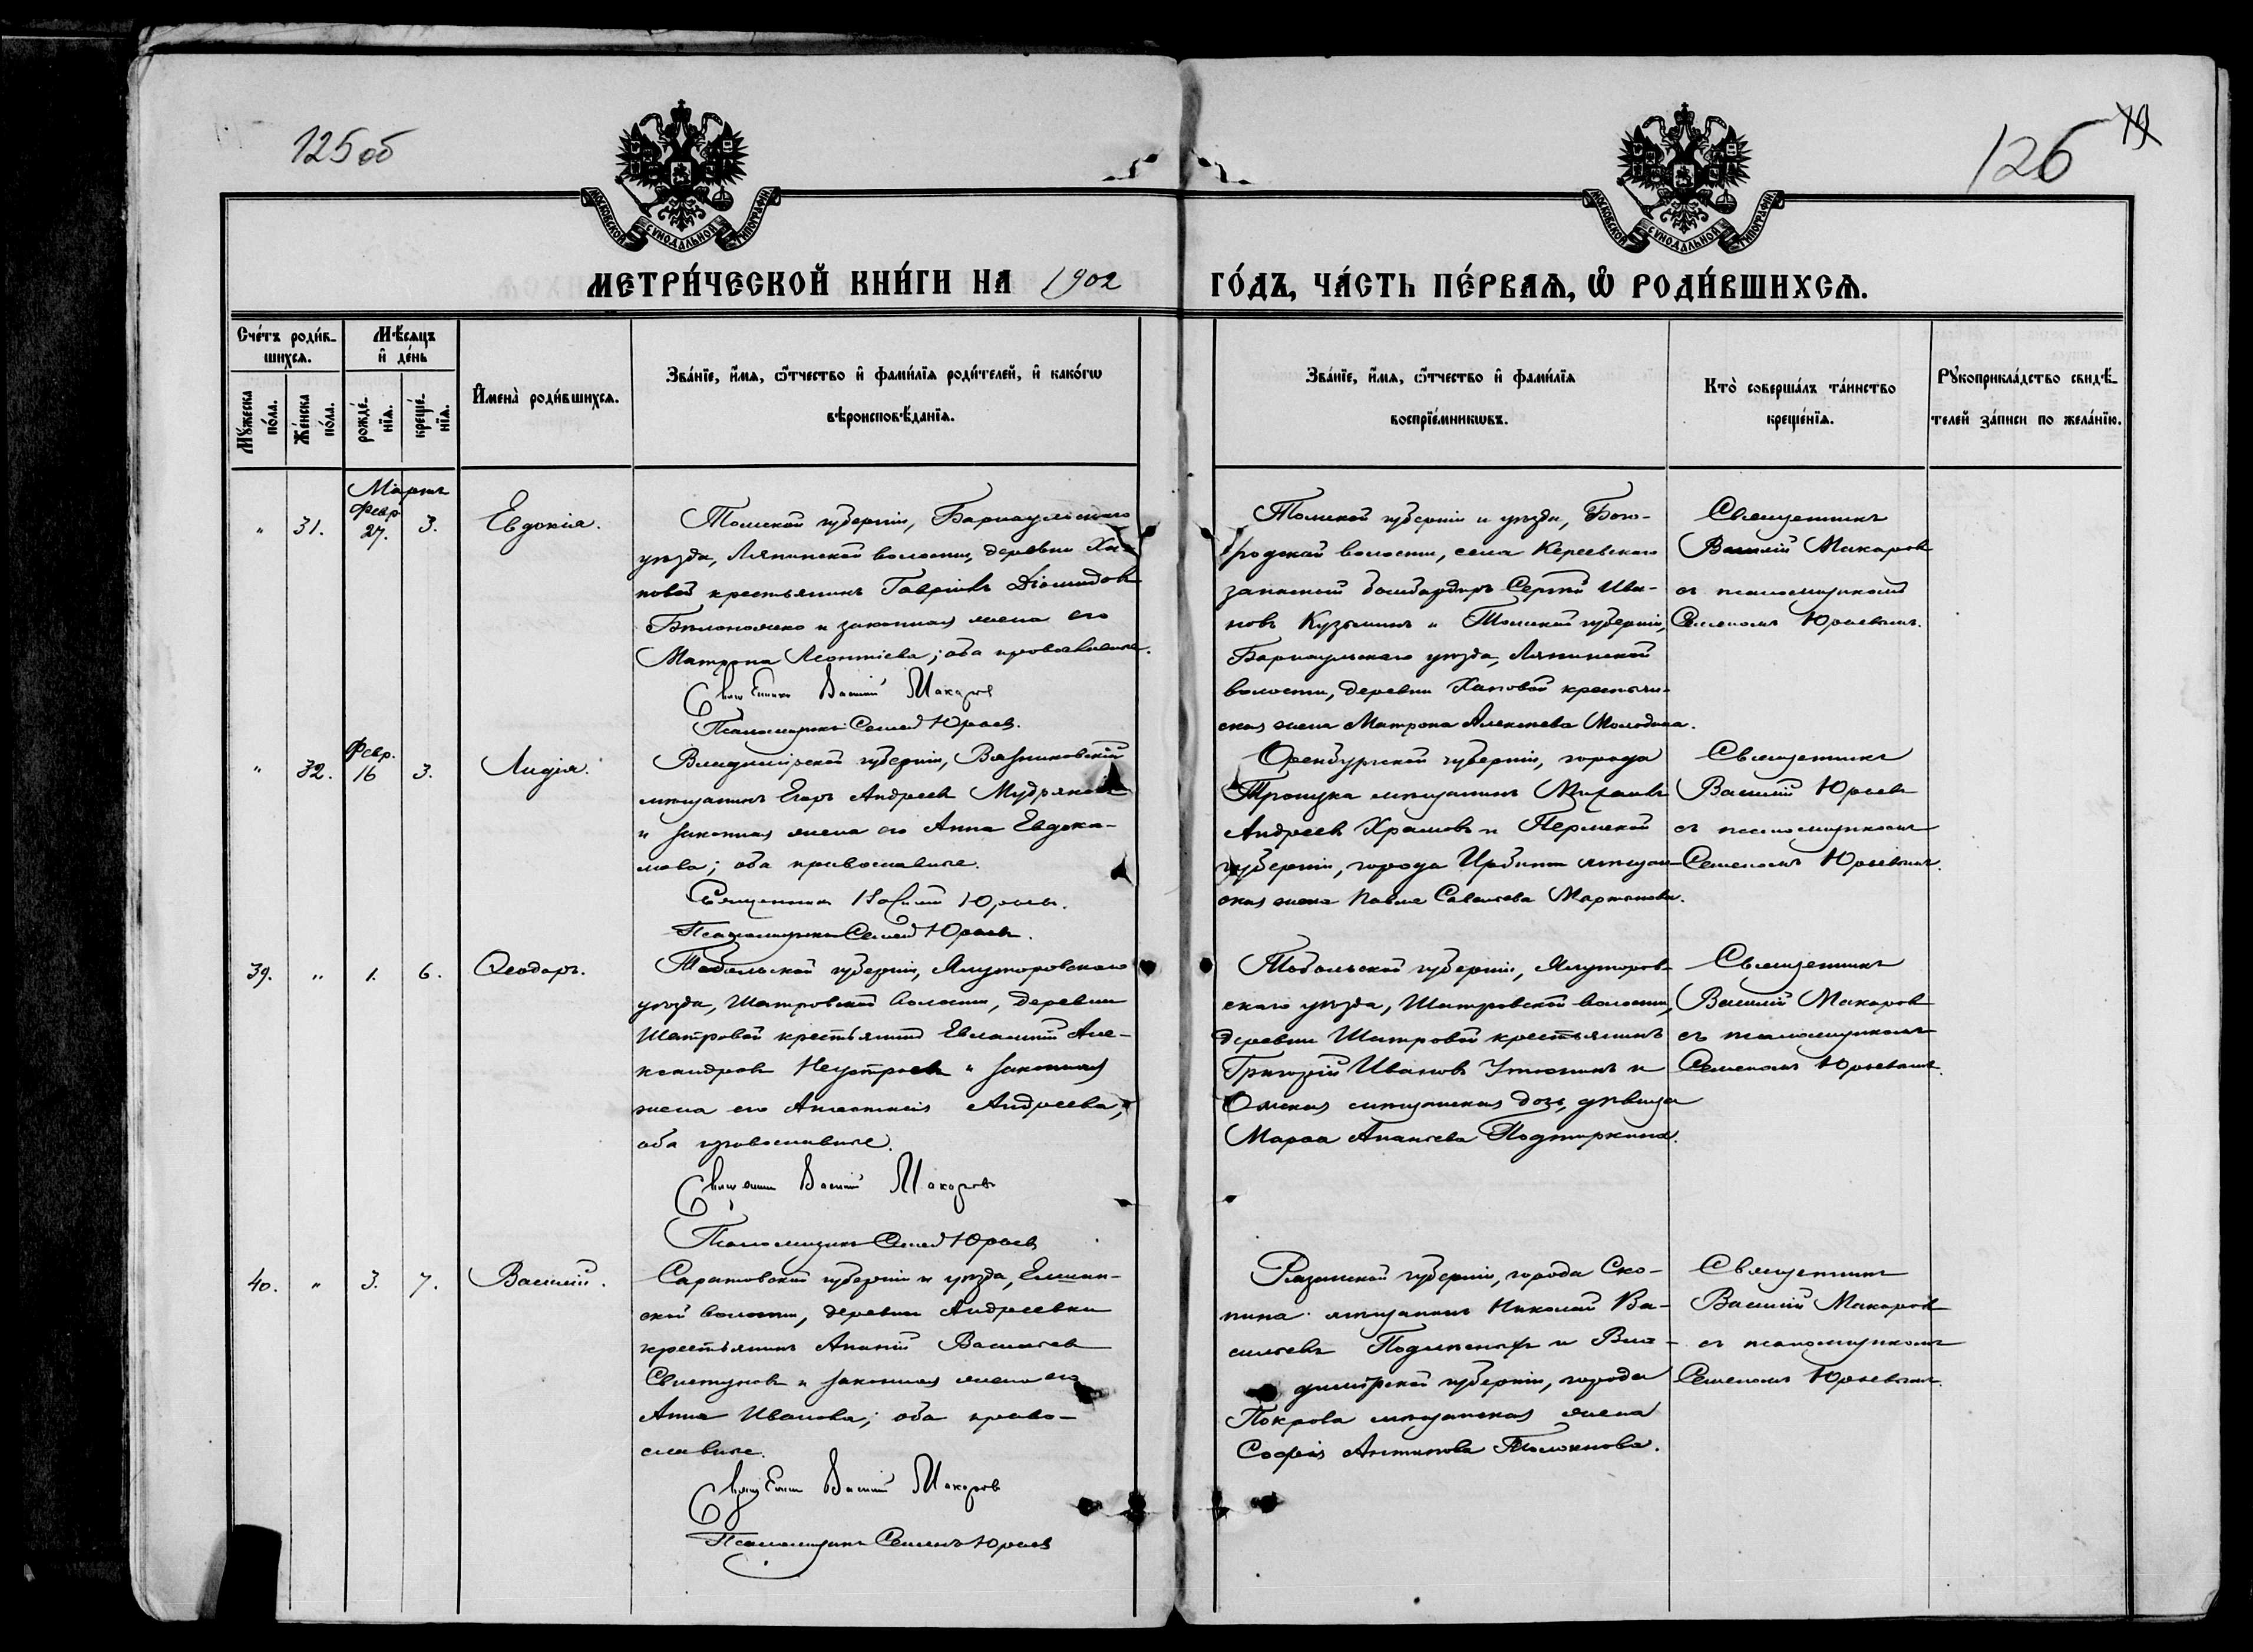 125 об
126
19
МОСКОВСКОЙ СѴНОДАЛЬНОЙ ТИПОГРАФІИ
МОСКОВСКОЙ СѴНОДАЛЬНОЙ ТИПОГРАФІИ
МЕТРИ́ЧЕСКОЙ КНИ́ГИ НА 1902
ГО́ДЪ, ЧА́СТЬ ПЕ́РВАѦ, Ѽ РОДИ́ВШИХСѦ.
Сче́тъ роди́в-
шихсѧ.
Мꙋ́жеска
по́ла.
Же́нска
по́ла.
Мѣ́сѧцъ
и҆ де́нь
рожде́-
нїѧ.
креще́-
нїѧ.
И҆мена̀ роди́вшихсѧ.
Зва́нїе, и҆́мѧ, ѻ҆́тчество и҆ фами́лїѧ роди́телей, и҆ како́гѡ
вѣроисповѣ́данїѧ.
Зва́нїе, и҆́мѧ, ѻ҆́тчество и҆ фами́лїѧ
воспрїе́мникѡвъ.
Кто̀ соверша́лъ та́инство
креще́нїѧ.
Рꙋкоприкла́дство свидѣ́-
телей за́писи по жела́нїю.
Мартъ
" 31. Февр. 27. 3. Евдокія.
Томской губерніи, Барнаульскаго
уѣзда, Ляпинской волости, деревни Ха-
повой крестьянинъ Гавріилъ Діомидовъ
Бѣлоножко и законная жена его
Матрона Леонтіева; оба православные.
Священникъ Василій Макаровъ
Псаломщикъ Семенъ Юрьевъ.
Томской губерніи и уѣзда, Бого-
родской волости, села Кереевскаго
запасной бомбардиръ Сергій Ива-
новъ Кузьминъ и Томской губерніи,
Барнаульскаго уѣзда, Ляпинской
волости, деревни Хаповой крестьян-
ская жена Матрона Алексѣева
Священникъ
Василій Макаровъ
съ псаломщикомъ
Семеномъ Юрьевымъ.
" 32. Февр. 16 3. Лидія.
Владимірской губерніи, Вязниковскій
мѣщанинъ Егоръ Андреевъ
и законная жена его Анна Евдоки-
мова; оба православные.
Священникъ Василій Юрьевъ.
Псаломщикъ Семенъ Юрьевъ.
Оренбургской губерніи, города
Троицка мѣщанинъ Михаилъ
Андреевъ Храмовъ и Пермской
губерніи, города Ирбита мѣщан-
ская жена Савельева
Священникъ
Василій Юрьевъ
съ псаломщикомъ
Семеномъ Юрьевымъ.
39. " 1. 6. Ѳеодоръ.
Тобольской губерніи, Ялуторовскаго
уѣзда, Шатровской волости, деревни
Шатровой крестьянинъ Евлампій Але-
ксандровъ Неустроевъ и законная
жена его Андреева,
оба православные.
Священникъ Василій Макаровъ
Псаломщикъ Семенъ Юрьевъ
Тобольской губерніи, Ялуторов-
скаго уѣзда, Шатровской волости,
деревни Шатровой крестьянинъ
Григорій Ивановъ и
Омская мѣщанская дочь, дѣвица
Марѳа Ананьева
Священникъ
Василій Макаровъ
съ псаломщикомъ
Семеномъ Юрьевымъ.
40. " 3. 7. Василій.
Саратовской губерніи и уѣзда, Елшан-
ской волости, деревни Андреевки
крестьянинъ Ананій Васильевъ
Свистуновъ и законная жена его
Анна Иванова; оба право-
славные.
Священникъ Василій Макаровъ
Псаломщикъ Семенъ Юрьевъ
Рязанской губерніи, города Ско-
пина мѣщанинъ Николай Ва-
сильевъ и Вла-
димірской губерніи, города
Покрова мѣщанская жена
Софія Антипова Толокнова.
Священникъ
Василій Макаровъ
съ псаломщикомъ
Семеномъ Юрьевымъ.